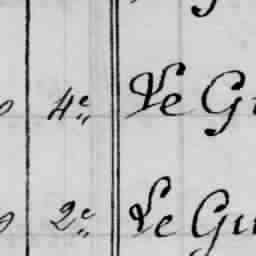 4e Le Gu
2e Le Gu